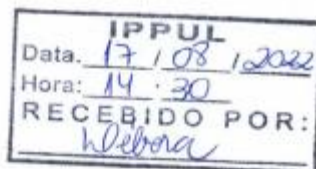 IPPUL
Data. 17 / 08 / 2022
Hora: 14 : 30
RECEBIDO POR:
Débora